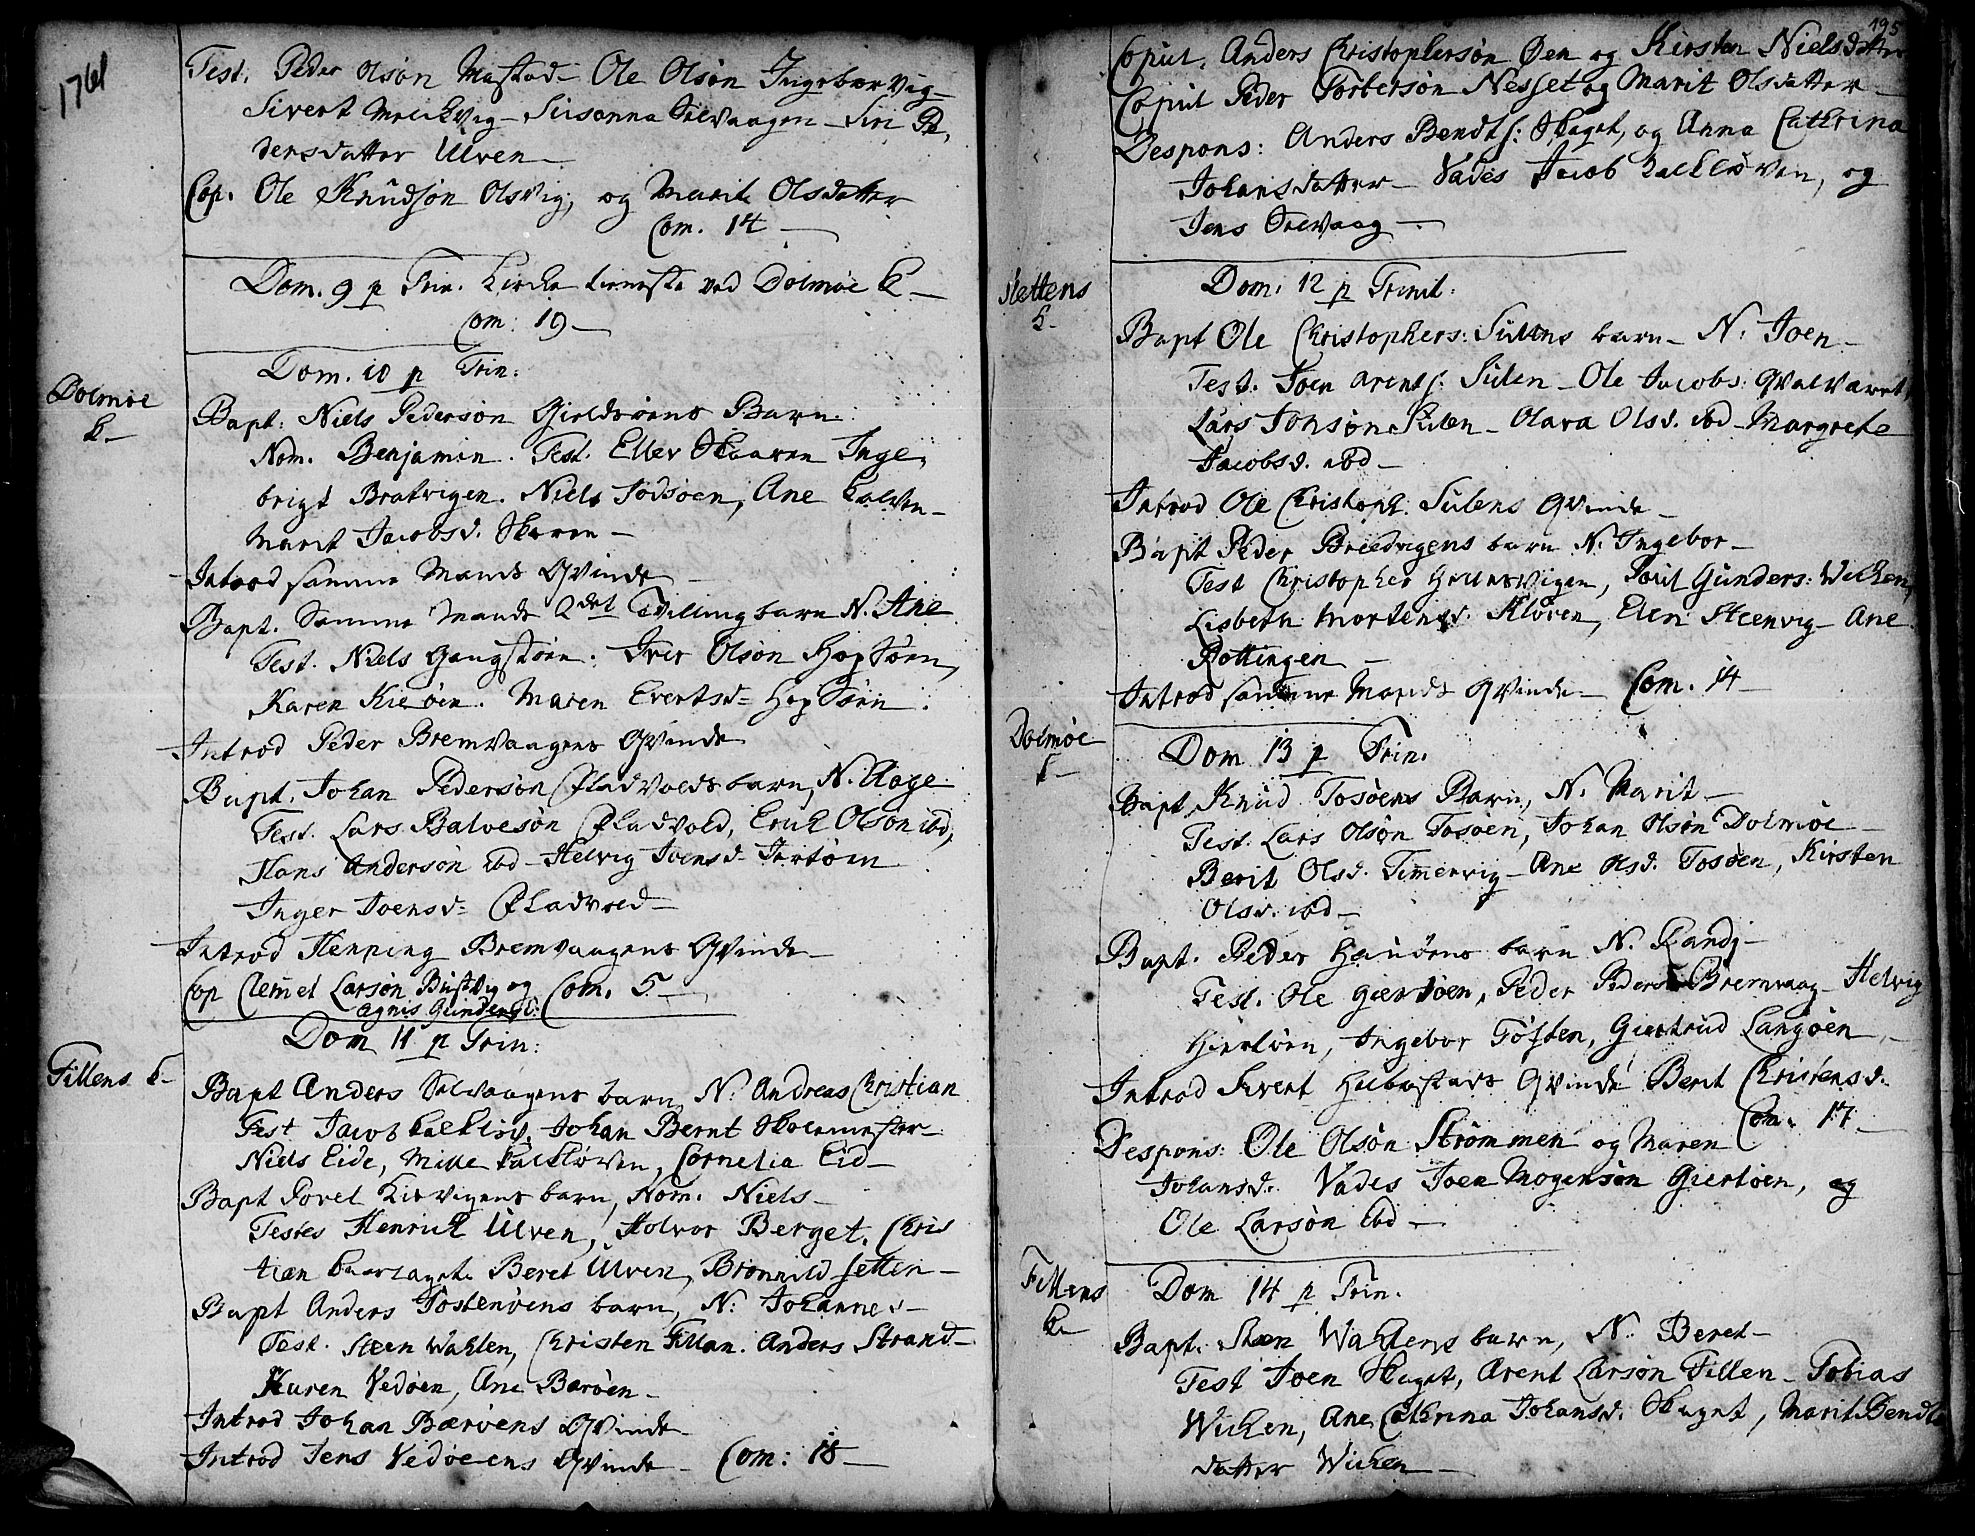 1761
Test. Peder Olsøn Mastad - Ole Olsøn Ingeborvig -
Sivert Melckvig - Susanna Selvaagen - Siri Pe,
dersdatter Ulven -
Cop. Ole Knudsøn Olsvig, og Marit Olsdatter
Com. 14 -
Dom. 9 p Trin. Kircke tieneste ved Dolmøe K. -
Com: 19 -
Dolmøe
K -
Dom. 10 p Trin:
Bapt: Niels Pedersøn Barn.
Nom. Benjamin. Test. Eller Skaaren Inge,
brigt Bratvigen. Niels Todsøen, Ane Kalven -
Marit Jacobsd. Skaren -
Introd samme Mands Qvinde -
Bapt. Samme Mands 2det Tvilling barn N. Ane
Test. Niels Gangstøen. Iver Olsøn Hopsøen,
Karen Kierøen. Maren Evertsd= Hopsøen.
Introd Peder Bremvaagens Qvinde
Bapt. Johan Pedersøn Fladvolds barn, N. Aage
Test. Lars Balvesøn Fladvold, Erich Olsøn ibd,
Hans Andersøn ibd - Helvig Joensd=
Inger Joensd= Fladvold -
Introd Henning Bremvaagens Qvinde -
Cop Clemet Larsøn Bustvig og Com. 5 -
Agnis
Fillens K -
Dom 11 p Trin:
Bapt Anders Selvaagens barn, N. Andreas Christian
Test Jacob Johan Bernt Skolemester -
Niels Eide, Mille Kalkløven, Cornelia Eid -
Bapt Povel Kirvigens barn, Nom. Niels -
Testes Henrich Ulven, Holvor Berget, Chris
tian Beret Ulven, Brønnild Setten -
Bapt Anders Tostenøens barn, N: Johannes -
Test. Steen Wahlen, Christen Fillan. Anders Strand -
Karen Vedøen, Ane Barøen -
Introd Johan Bærøens Qvinde -
Introd Jens Vedøeens Qvinde - Com: 18 -
195
Copul. Anders Christophersøn Øen og Kirsten Nielsdatter
Copul Peder Torbersøn Nesset og Marit Olsdatter -
Despons: Anders Bendts: Skaget, og Anna Cathrina
Johansdatter - Vades Jacob Kalkløven, og
Jens Selvaag -
Slettens
K -
Dom. 12 p Trinit.
Bapt Ole Christophers: Sulens barn - N. Joen -
Test. Joen Arents: Sulen - Ole Jacobs: Qvalværet,
Lars Johsøn Sulen - Olava Olsd. ibd - Margrete
Jacobsd. ibd -
Introd Ole Christoph. Sulens Qvinde -
Bapt Peder Breedvigens barn N. Ingebor -
Test Christopher Poul Gunders: Wichen,
Lisbeth Mortensd. Kløven, Elen Steenvig - Ane
Rottingen -
Introd samme Mands Qvinde - Com. 14 -
Dolmøe
K -
Dom 13 p Trin.
Bapt Knud Tosøens Barn, N. Marit -
Test. Lars Olsøn Tosøen, Johan Olsøn Dolmøe -
Berit Olsd. Timervig - Ane Olsd. Tosøen, Kirsten
Olsd. ibd -
Bapt. Peder Hanøens barn N. Randj -
Test. Ole Giertøen, Peder Peders: Bremvaag - Helvig
Hiertøen, Ingebor Tøften, Giertrud Langøen -
Introd Sivert Qvinde Berit Christensd.
Com. 17 -
Despons: Ole Olsøn Strømmen og Maren
Johansd. Vades Joen Mogensøn Giertøen, og
Ole Larsøn ibd -
Fillens
K -
Dom 14 p Trin.
Bapt. Steen Wahlens barn, N. Beret -
Test Joen Skaget, Arent Larsøn Fillen - Tobias
Wichen, Ane Cathrina Johansd. Skaget, Marit Bendts
datter Wichen -